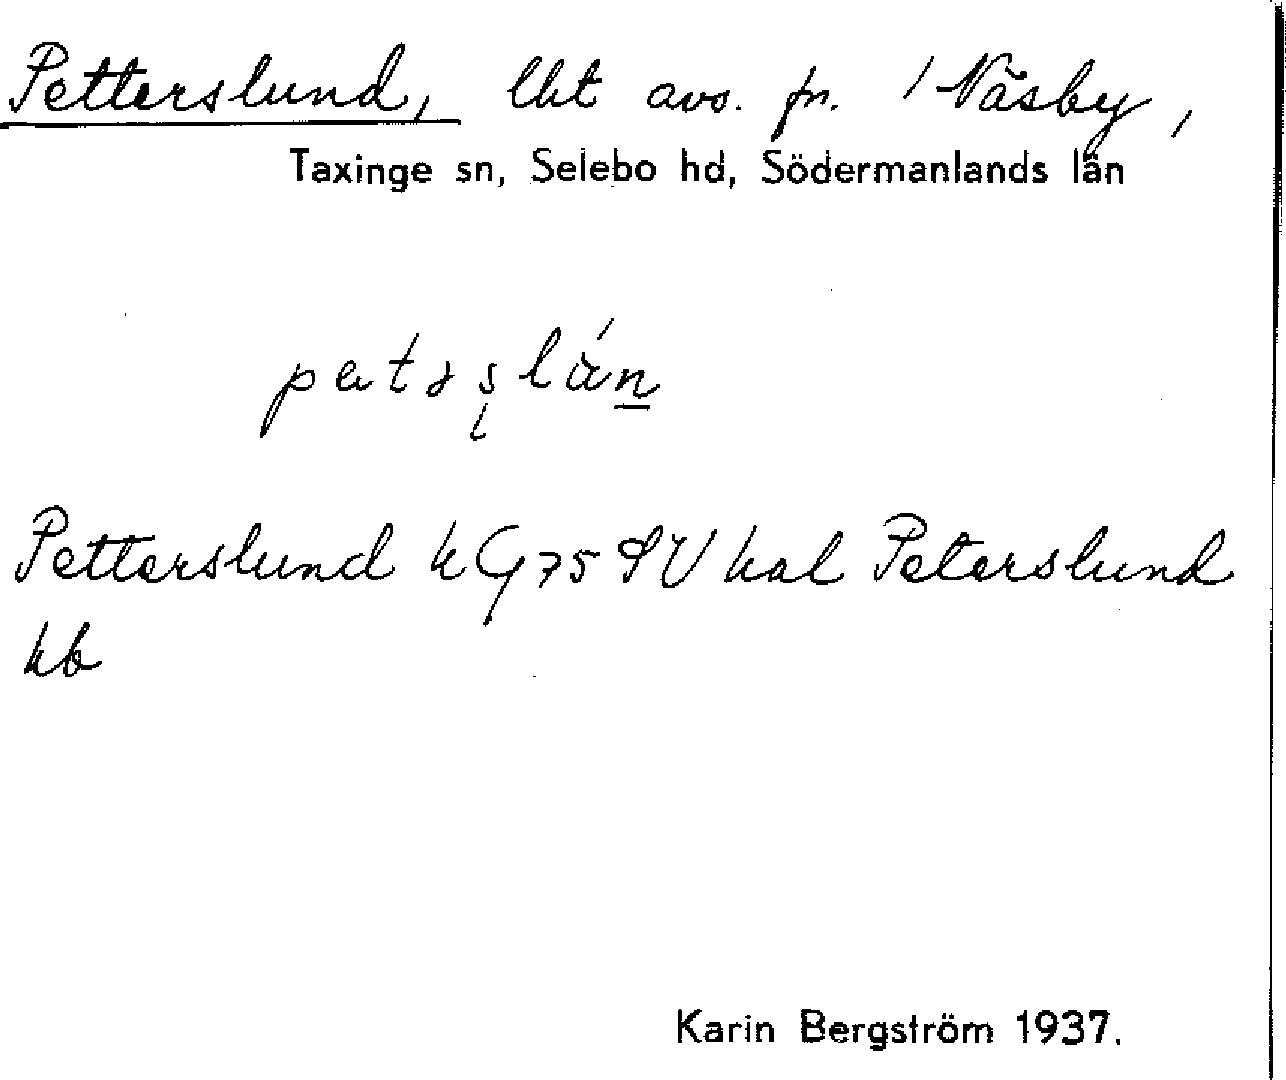 Petterslund, lht avs. fr. 1 Näsby,
Taxinge sn, Selebo hd, Södermanlands län
Petterslund k G75 SV hal Peterslund
kb
Karin Bergström 1937.